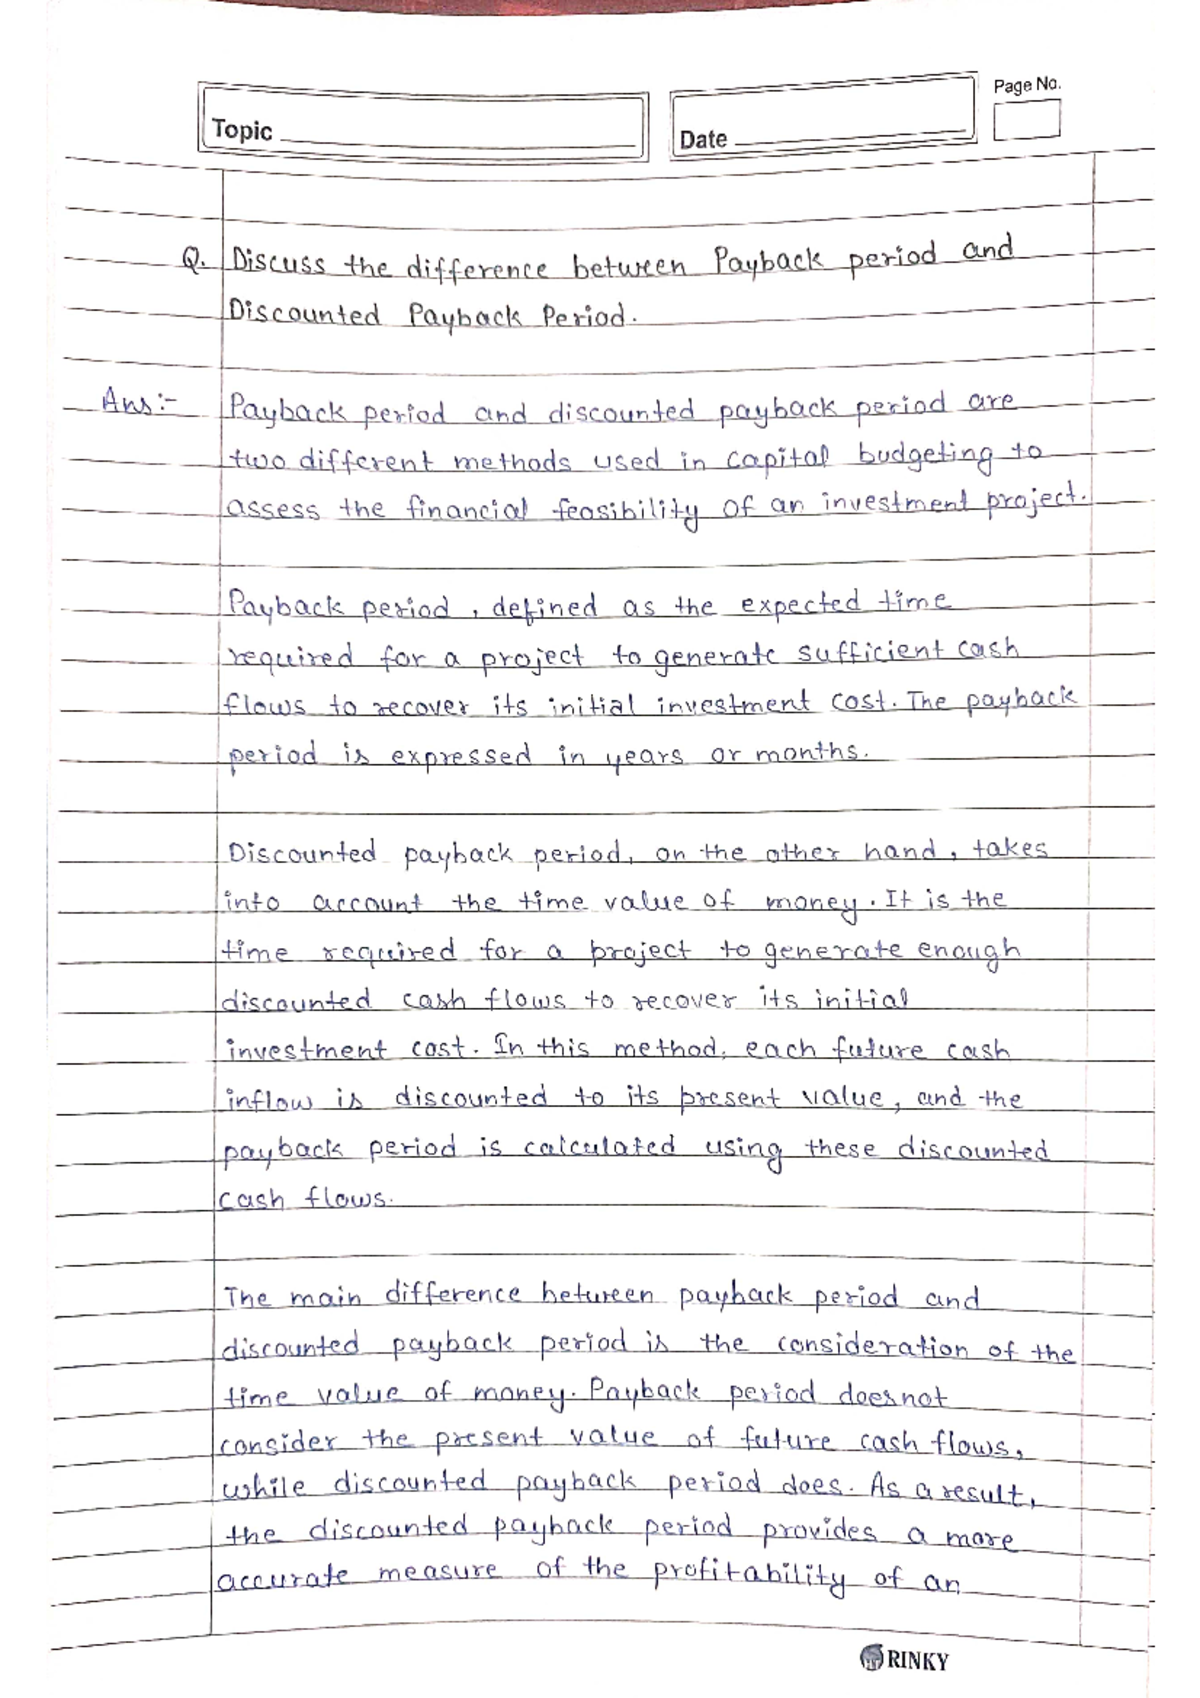 Page No.
Topic
Date
Q. Discuss the difference between Payback period and
Discounted Payback Period.
Ans:- Payback period and discounted payback period are
two different methods used in capital budgeting to
assess the financial feasibility of an investment project.
Payback period, defined as the expected time
required for a project to generate sufficient cash
flows to recover its initial investment cost. The payback
period is expressed in years or months.
Discounted payback period, on the other hand, takes
into account the time value of money. It is the
time required for a project to generate enough
discounted cash flows to recover its initial
investment cost. In this method, each future cash
inflow is discounted to its present value, and the
payback period is calculated using these discounted
cash flows.
The main difference between payback period and
discounted payback period is the consideration of the
time value of money. Payback period does not
consider the present value of future cash flows,
while discounted payback period does. As a result,
the discounted payback period provides a more
accurate measure of the profitability of an
RINKY